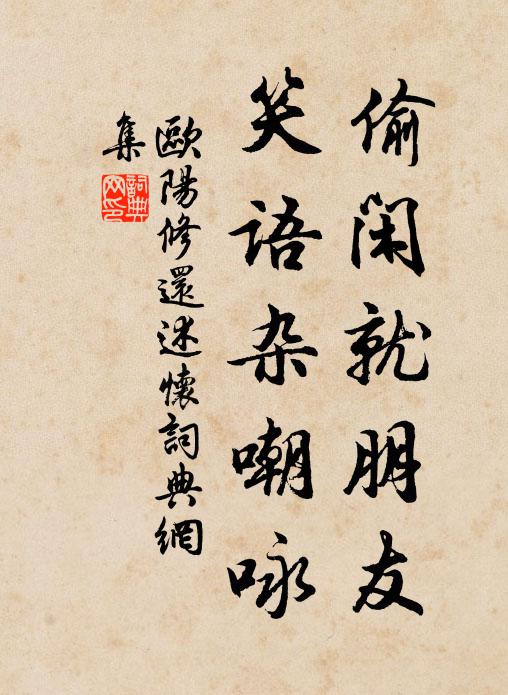 偷閑就朋友
笑语杂嘲咏
歐陽修還述懷詞典網
集
詞典
网印